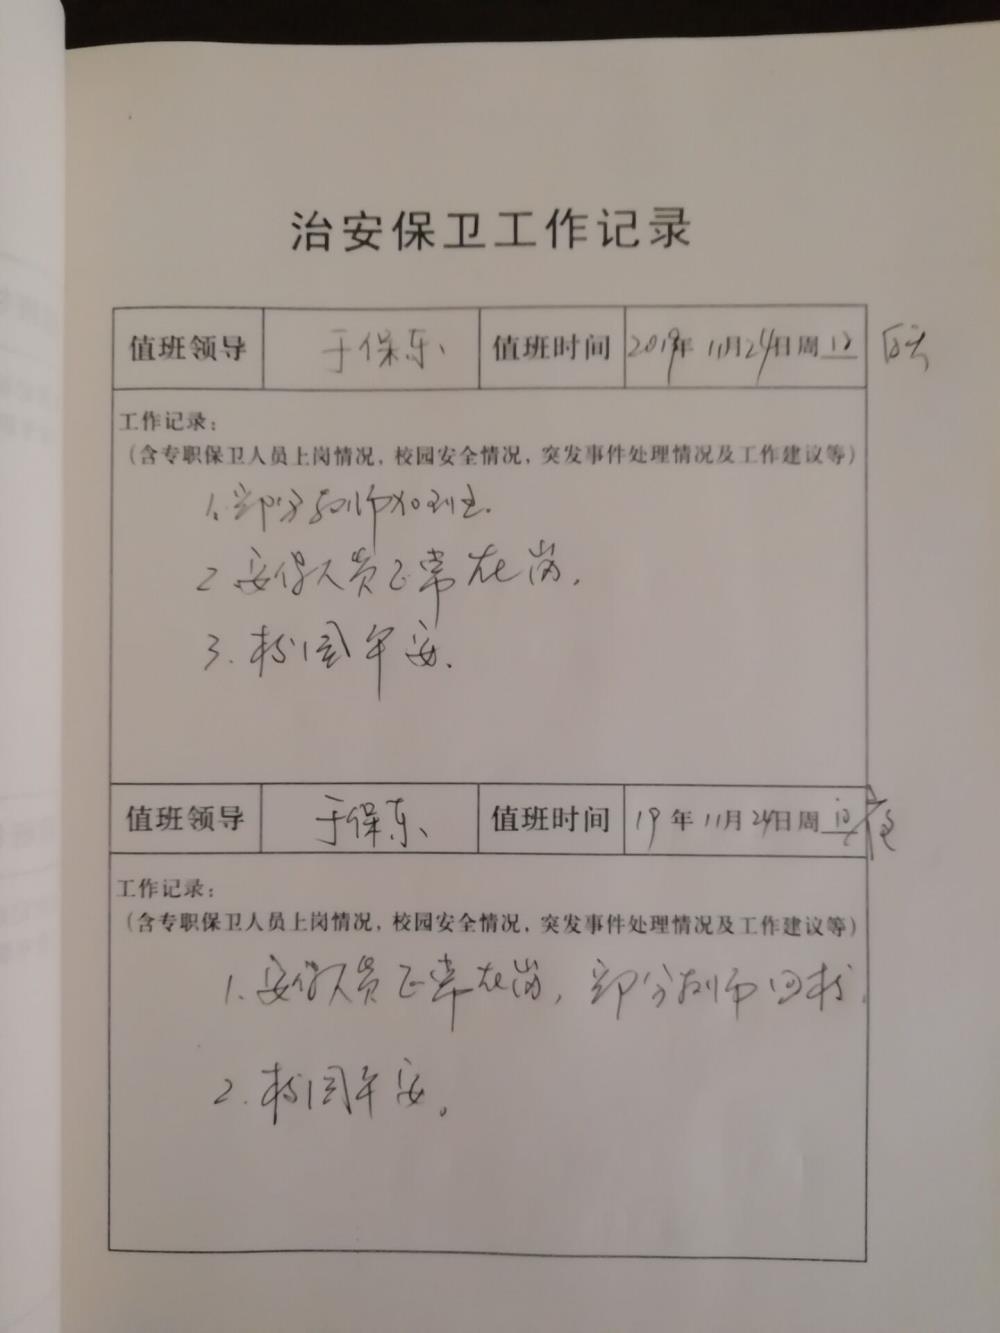 治安保卫工作记录
值班领导 于保东 值班时间 2019年11月24日周日 白天
工作记录：
（含专职保卫人员上岗情况，校园安全情况，突发事件处理情况及工作建议等）
1.部分教师加班.
2 安保人员正常在岗.
3.校园平安.
值班领导 于保东 值班时间 19年11月24日周日夜
工作记录：
（含专职保卫人员上岗情况，校园安全情况，突发事件处理情况及工作建议等）
1.安保人员正常在岗，部分教师回校.
2.校园平安。